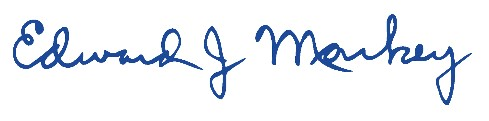 Edward J Markey